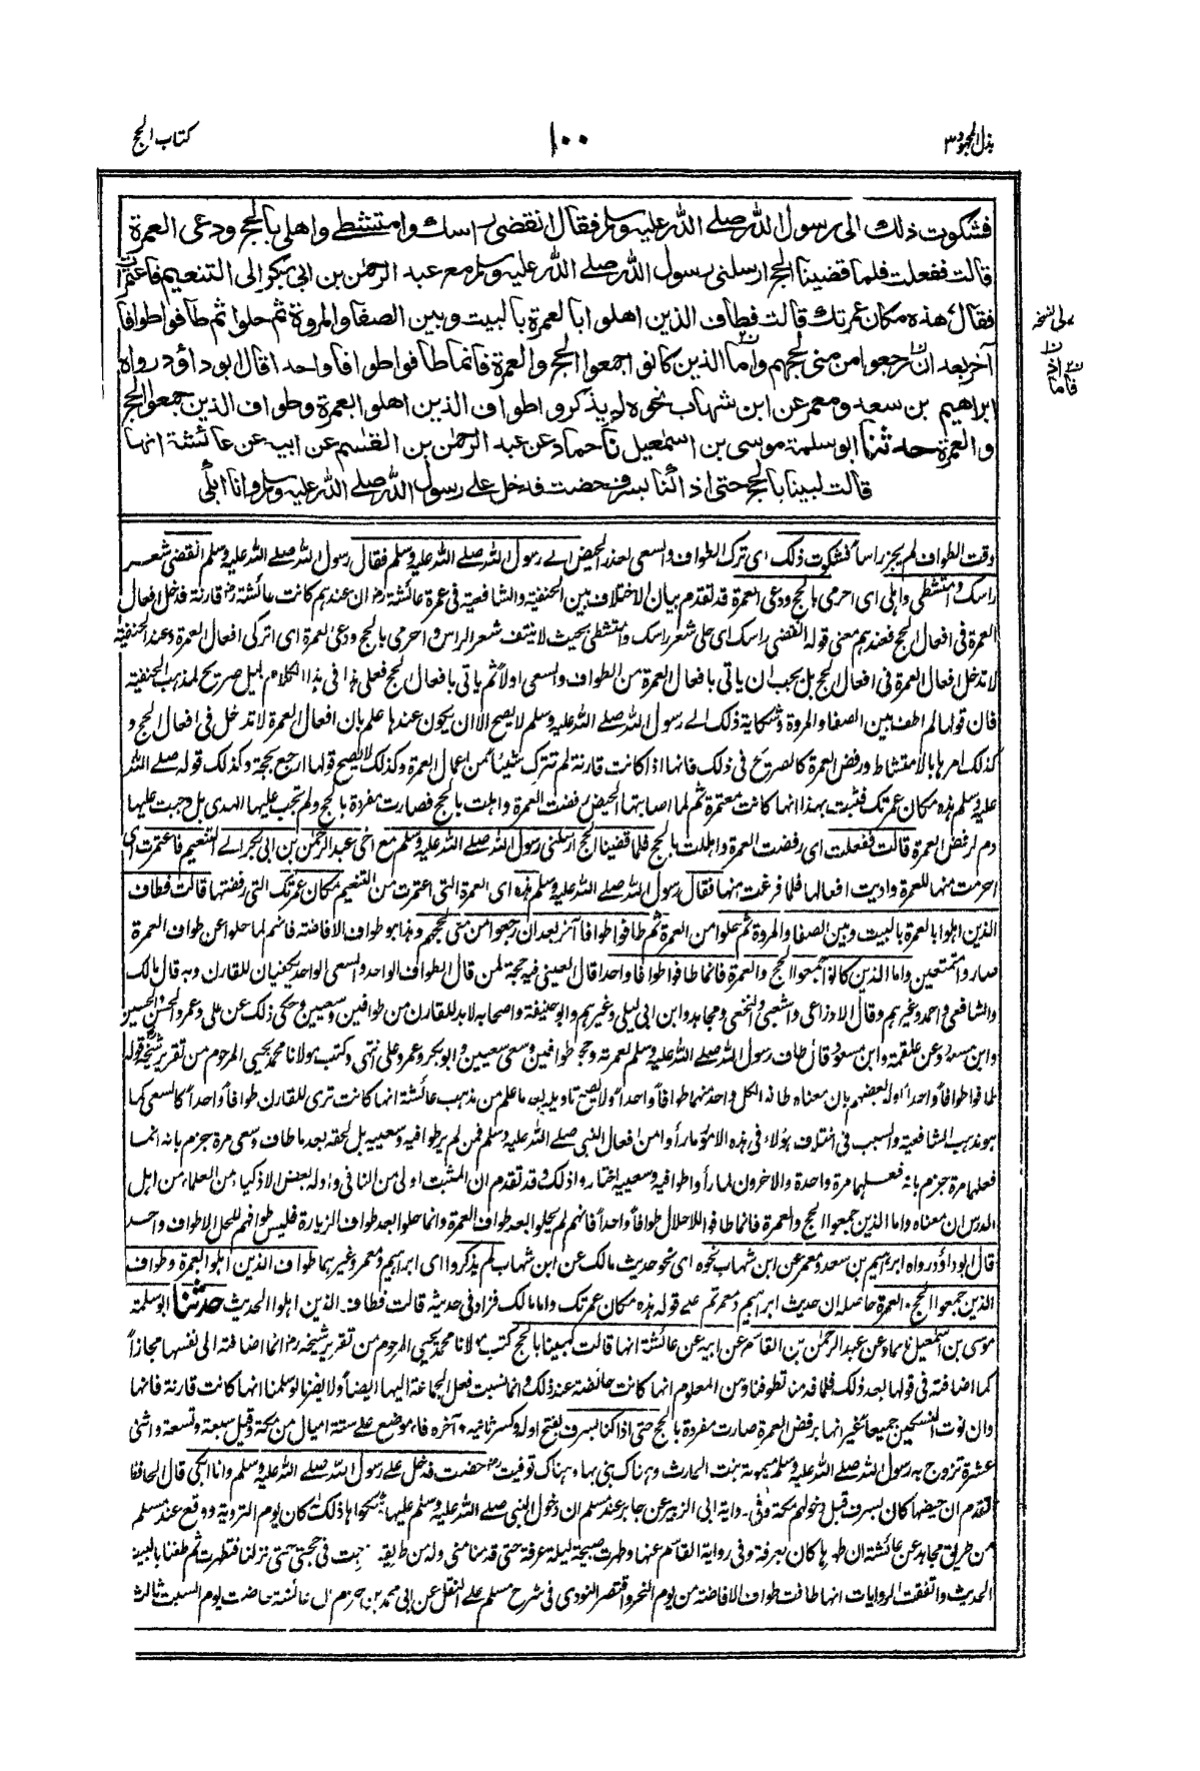 بذل المجهود ٣
١٠٠
كتاب الحج
فشكوت ذلك الى رسول الله صلى الله عليه وسلم فقال انقضى راسك وامتشطى واهلى بالحج ودعى العمرة
قالت ففعلت فلما قضينا الحج ارسلنى رسول الله صلى الله عليه وسلم مع عبد الرحمٰن بن ابى بكر الى التنعيم فاعتمرت
فقال هذه مكان عمرتك قالت فطاف الذين اهلوا بالعمرة بالبيت وبين الصفا والمروة ثم حلوا ثم طافوا طوافا
آخر بعد ان رجعوا من منى لحجهم واما الذين كانوا جمعوا الحج والعمرة فانما طافوا طوافا واحدا قال ابو داؤد رواه
ابراهيم بن سعد ومعمر عن ابن شهاب نحوه لم يذكروا طواف الذين اهلوا بالعمرة وطواف الذين جمعوا الحج
والعمرة حدثنا ابو سلمة موسى بن اسمٰعيل نا حماد عن عبد الرحمٰن بن القٰسم عن ابيه عن عائشة انها
قالت لبينا بالحج حتى اذا كنا بسرف حضت فدخل على رسول الله صلى الله عليه وسلم وانا ابكى
وقت الطواف لم يجز راسا فشكوت ذلك اى ترك الطواف والسعى لعذر الحيض الى رسول الله صلى الله عليه وسلم فقال رسول الله صلى الله عليه وسلم انقضى شعر
راسك وامتشطى واهلى اى احرمى بالحج ودعى العمرة قد تقدم بيان الاختلاف بين الحنفية والشافعية فى عمرة عائشة رض ان عندهم كانت عائشة رض قارنة فدخل افعال
العمرة فى افعال الحج فعندهم معنى قوله انقضى راسك اى حلى شعر راسك وامتشطى بحيث لا ينتف شعر الراس واحرمى بالحج ودعى العمرة اى اتركى افعال العمرة وعند الحنفية
لا تدخل افعال العمرة فى افعال الحج بل يجب ان ياتى بافعال العمرة من الطواف والسعى اولا ثم ياتى بافعال الحج فعلى هذا فى هذا الكلام دليل صريح لمذهب الحنفية
فان قولها لم اطف بين الصفا والمروة وشكاية ذلك الى رسول الله صلى الله عليه وسلم لا يصح الا ان يكون عندها علم بان افعال العمرة لا تدخل فى افعال الحج و
كذلك امرها بالامتشاط ورفض العمرة كالصريح فى ذلك فانها اذا كانت قارنة لم تترك شيئا من اعمال العمرة وكذلك لا يصح قولها ارجع بحجة وكذلك قوله صلى الله
عليه وسلم هذه مكان عمرتك فثبت بهذا انها كانت معتمرة ثم لما اصابتها الحيض رفضت العمرة واهلت بالحج فصارت مفردة بالحج ولم تجب عليها الهدى بل وجبت عليها
دم لرفض العمرة قالت ففعلت اى رفضت العمرة واهللت بالحج فلما قضينا الحج ارسلنى رسول الله صلى الله عليه وسلم مع اخى عبد الرحمٰن بن ابى بكر الى التنعيم فاعتمرت اى
احرمت منها للعمرة واديت افعالها فلما فرغت منها فقال رسول الله صلى الله عليه وسلم هذه اى العمرة التى اعتمرت من التنعيم مكان عمرتك التى رفضتها قالت فطاف
الذين اهلوا بالعمرة بالبيت وبين الصفا والمروة ثم حلوا من العمرة ثم طافوا طوافا آخر بعد ان رجعوا من منى لحجهم وهذا هو طواف الافاضة فانهم لما حلوا عن طواف العمرة
صاروا متمتعين واما الذين كانوا جمعوا الحج والعمرة فانما طافوا طوافا واحدا قال العينى فيه حجة لمن قال الطواف الواحد والسعى الواحد يكفيان للقارن وبه قال مالك
والشافعى واحمد وغيرهم وقال الاوزاعى والشعبى والنخعى ومجاهد وابن ابى ليلى وغيرهم وابو حنيفة واصحابه لا بد للقارن من طوافين وسعيين وحكى ذلك عن على وعمر والحسن والحسين
وابن مسعود وعن علقمة وابن مسعود قال طاف رسول الله صلى الله عليه وسلم لعمرته وحجه طوافين وسعى سعيين وابو بكر وعمر وعلى انتهى وكتب مولانا محمد يحيى المرحوم من تقرير شيخه قوله
انما طافوا طوافا واحدا اوله بعضهم بان معناه طاف لكل واحد منهما طوافا واحدا ولا يصح تاويله بعد ما علم من مذهب عائشة انها كانت ترى للقارن طوافا واحدا كالسعى كما
هو مذهب الشافعية والسبب فى اختلاف هؤلاء فى هذه الامور ما رأوا من افعال النبى صلى الله عليه وسلم فمن لم ير طوافيه وسعييه بل لحقه بعد ما طاف وسعى مرة جزم بانه انما
فعلها مرة جزم بانه فعلهما مرة واحدة والآخرون لما رأوا طوافيه وسعييه اختاروا ذلك وقد تقدم ان المثبت اولى من النافى واوله بعض الاذكياء من العلماء من اهل
الدرس ان معناه واما الذين جمعوا الحج والعمرة فانما طافوا للاحلال طوافا واحدا فانهم لم يحلوا بعد طواف العمرة وانما حلوا بعد طواف الزيارة فليس طوافهم للحل الا طواف واحد
قال ابو داؤد رواه ابراهيم بن سعد ومعمر عن ابن شهاب نحوه اى نحو حديث مالك عن ابن شهاب لم يذكروا اى ابراهيم ومعمر وغيرهما طواف الذين اهلوا بالعمرة وطواف
الذين جمعوا الحج والعمرة حاصله ان حديث ابراهيم ومعمر تم على قوله هذه مكان عمرتك واما مالك فزاد فى حديثه قالت فطاف الذين اهلوا الحديث حدثنا ابو سلمة
موسى بن اسمٰعيل نا حماد عن عبد الرحمٰن بن القاسم عن ابيه عن عائشة انها قالت لبينا بالحج كتب مولانا محمد يحيى المرحوم من تقرير شيخه رض انما اضافته الى نفسها مجازا
كما اضافته فى قولها بعد ذلك فلما قدمنا تطوفنا ومن المعلوم انها كانت حائضة عند ذلك وانما نسبت فعل الجماعة اليها ايضا ولا يضرنا لو سلمنا انها كانت قارنة فانها
وان نوت النسكين جميعا غير انها برفض العمرة صارت مفردة بالحج حتى اذا كنا بسرف بفتح اوله وكسر ثانيه وآخره فاء موضع على ستة اميال من مكة وقيل سبعة وتسعة واثنى
عشرة تزوج به رسول الله صلى الله عليه وسلم ميمونة بنت الحارث وهناك بنى بها وهناك توفيت رض حضت فدخل على رسول الله صلى الله عليه وسلم وانا ابكى قال الحافظ
تقدم ان حيضها كان بسرف قبل دخولهم مكة وفى رواية ابى الزبير عن جابر عند مسلم ان دخول النبى صلى الله عليه وسلم عليها وشكواها ذلك كان يوم التروية ووقع عند مسلم
من طريق مجاهد عن عائشة ان طهرها كان بعرفة وفى رواية القاسم عنها وطهرت صبيحة ليلة عرفة حتى قدمنا منى وله من طريقه فخرجت فى حجتى حتى نزلنا فتطهرت ثم طفنا بالبيت
الحديث واتفقت الروايات انها طافت طواف الافاضة من يوم النحر واقتصر النووى فى شرح مسلم على النقل عن ابى محمد بن حزم ان عائشة حاضت يوم السبت ثالث